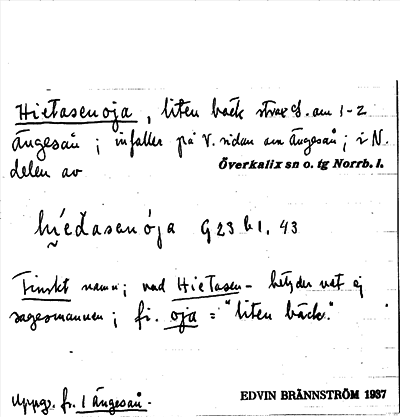 Hietasenoja, liten bäck strax S. om 1-2
Ängesån; infaller på V. sidan om Ängesån; i N.
delen av Överkalix sn o. tg Norrb. l.
híeđasenója G 23 b 1, 43
Finskt namn; vad Hietasen- betyder vet ej
sagesmannen; fi. oja = "liten bäck."
Uppg. fr. 1 Ängesån.
EDVIN BRÄNNSTRÖM 1937